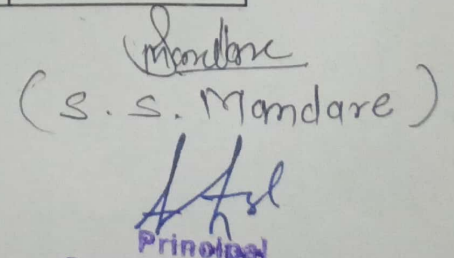 Mandare
(S. S. Mandare)
Principal